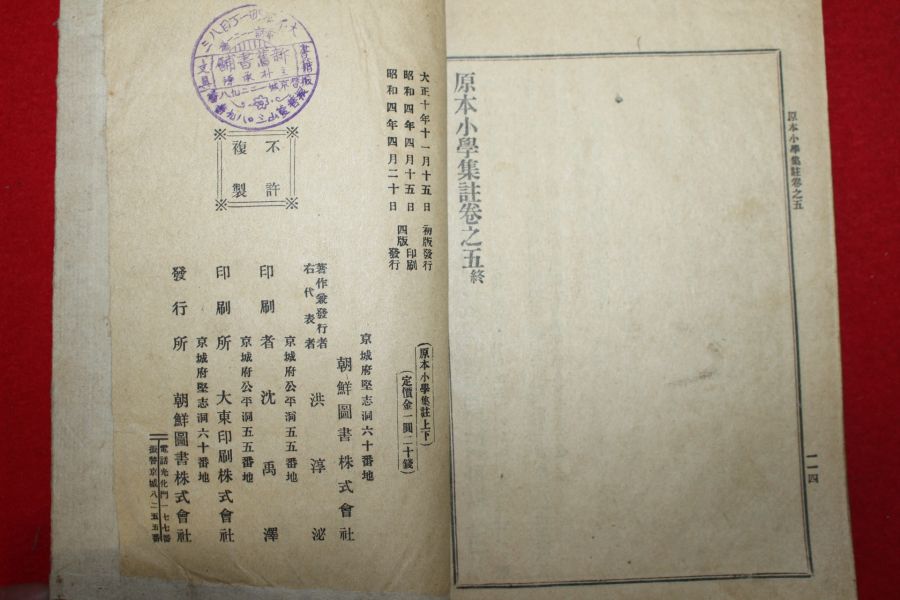 原本小學集註卷之五
一一四
原本小學集註卷之五終
原本小學集註上下
定價金一圓二十錢
大正十年十一月十五日 初版發行
昭和四年四月十五日 印刷
昭和四年四月二十日 四版發行
不許
複製
京城府堅志洞六十番地
著作兼發行者 朝鮮圖書株式會社
右代表者 洪淳泌
京城府公平洞五五番地
印刷者 沈禹澤
京城府公平洞五五番地
印刷所 大東印刷株式會社
京城府堅志洞六十番地
發行所 朝鮮圖書株式會社
電話光化門一七七番
振替京城八二五五番
新舊書鋪
文具